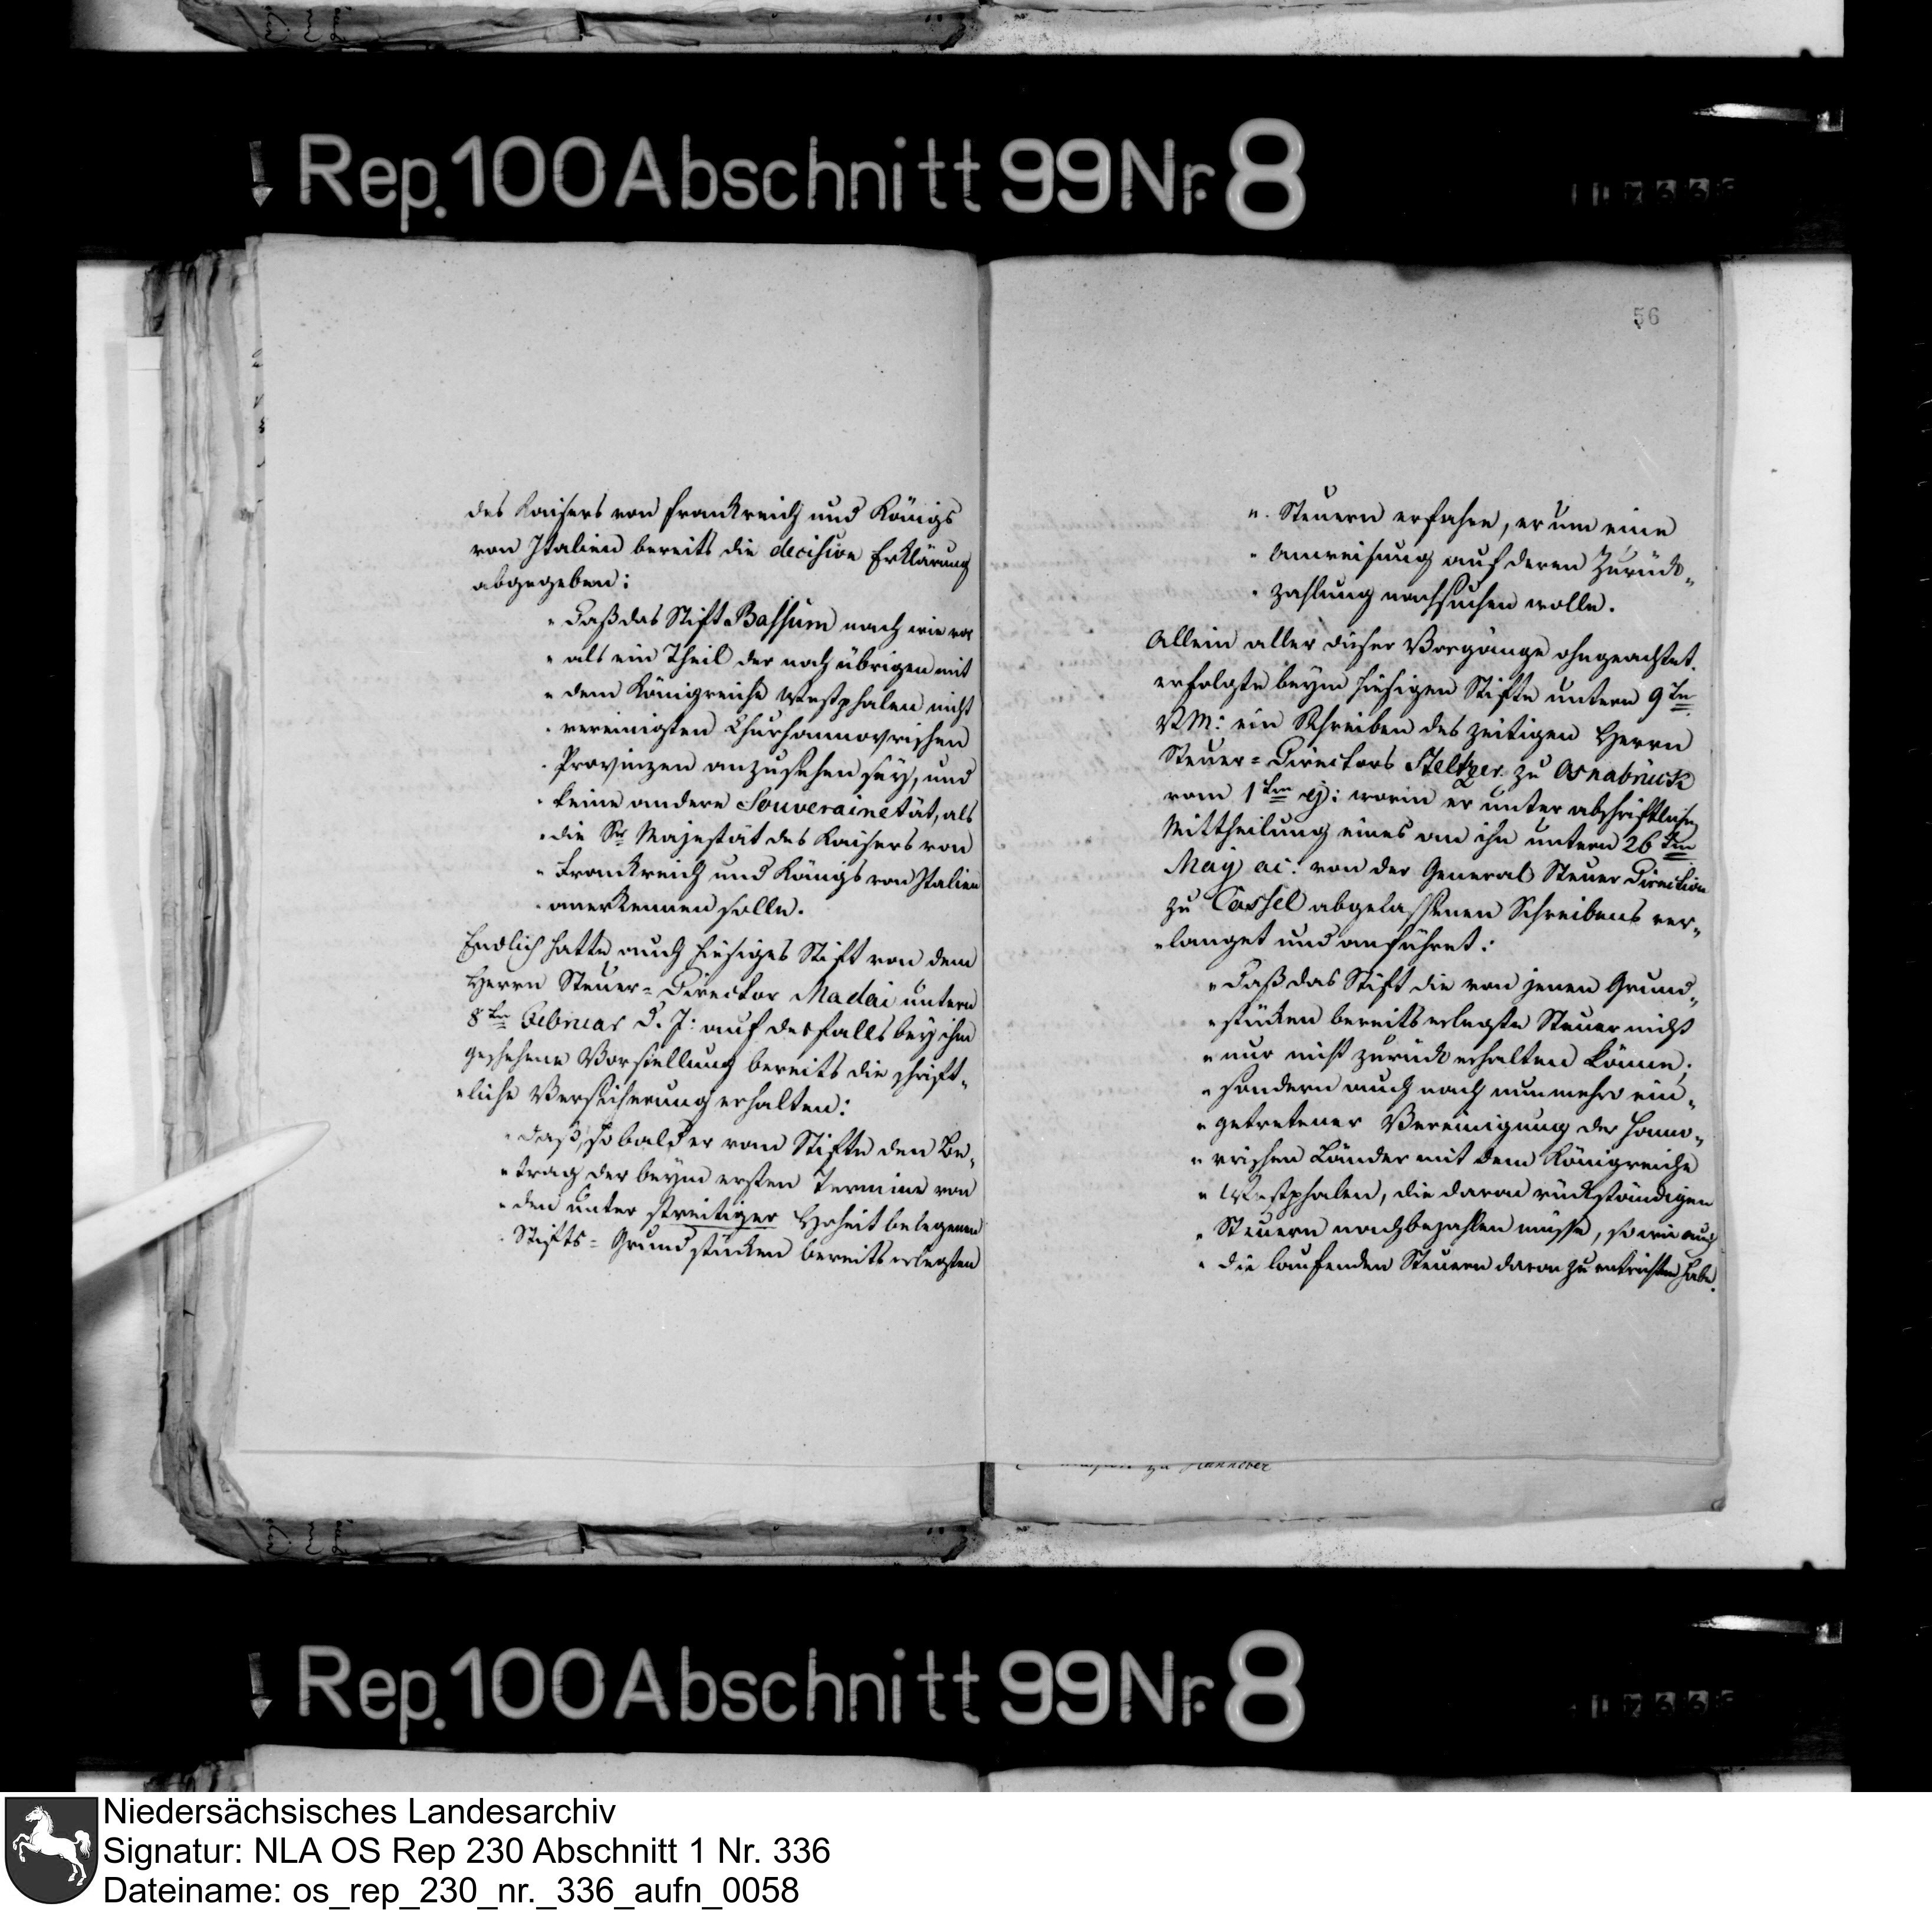 Rep. 100 Abschnitt 99 Nr. 8
des Kaisers von Frankreich und Königs
von Italien bereits die decisive Erklärung
abgegeben:
„Daß das Stift Bassum nach wie vor
„als ein Theil der noch übrigen mit
„dem Königreiche Westphalen nicht
„vereinigten Churhannovrischen
„Provinzen anzusehen sey, und
„keine andere Souverainetät, als
„die Sr Majestät des Kaisers von
„Frankreich und Königs von Italien
„anerkennen solle.
Endlich hatte auch hiesiges Stift von dem
Herrn Steuer=Director Madai unterm
8ten Februar d. J: auf desfalls bey ihm
geschehene Vorstellung bereits die schrift„
„liche Versicherung erhalten:
„daß, so bald er vom Stifte den Be„
„trag der beym ersten Termine von
„den unter streitiger Hoheit belegenen
„Stifts=Grundstücken bereits erlegten
56
„Steuern erfahre, er um eine
„Anweisung auf deren Zurück„
„zahlung nachsuchen wolle.
Allein aller dieser Vorgänge ohngeachtet
erfolgte beym hiesigen Stifte unterm 9ten
V M: ein Schreiben des zeitigen Herrn
Steuer=Directors Steltzer zu Osnabrück
vom 1ten ej: worin er unter abschriftliche
Mittheilung eines an ihn unterm 26ten
May ac: von der General Steuer Direction
zu Cassel abgelassenen Schreibens ver„
„langet und anführet:
„Daß das Stift die von jenen Grund„
„stücken bereits erlegte Steuer nicht
„nur nicht zurück erhalten könne,
„sondern auch nach nunmehro ein„
„getretener Vereinigung der Hano„
„vrischen Länder mit dem Königreiche
„Westphalen, die davon rückständigen
„Steuern nachbezahlen müsse, so wie auch
„die laufenden Steuern davon zu entrichten habe.
zu Hannover
Rep. 100 Abschnitt 99 Nr. 8
Niedersächsisches Landesarchiv
Signatur: NLA OS Rep 230 Abschnitt 1 Nr. 336
Dateiname: os_rep_230_nr._336_aufn_0058